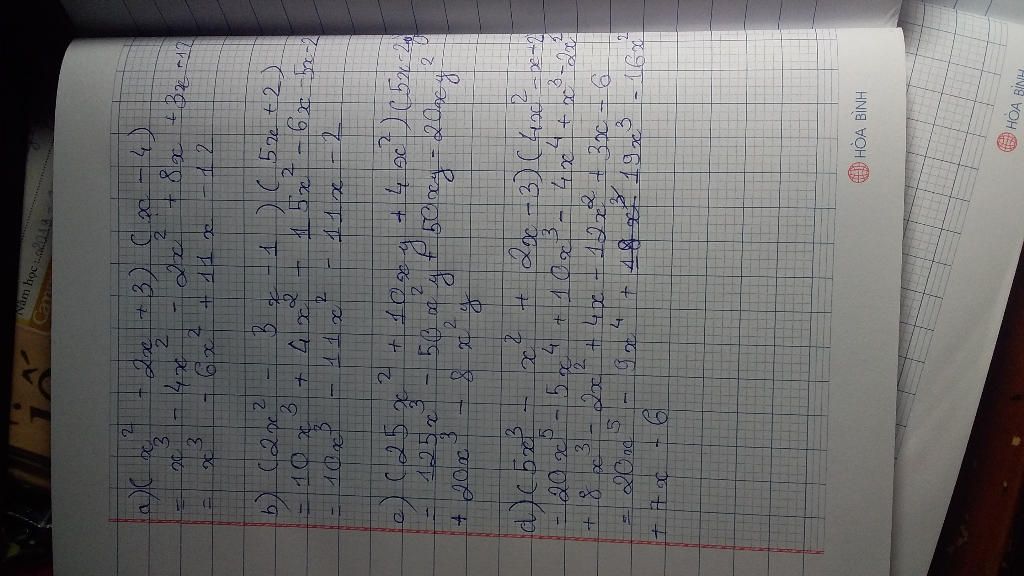 a) (x² + 2x + 3) (x - 4)
= x³ - 4x² - 2x² + 8x + 3x - 12
= x³ - 6x² + 11x - 12
b) (2x² - 3x - 1) (5x + 2)
= 10x³ + 4x² - 15x² - 6x - 5x - 2
= 10x³ - 11x² - 11x - 2
c) (25x² + 10xy + 4x²) (5x - 2y
= 125x³ - 50x²y + 50xy - 20xy²
+ 20x³ - 8x²y
d) (5x³ - x² + 2x - 3) (4x² - x + 2
= 20x⁵ - 5x⁴ + 10x³ - 4x⁴ + x³ - 2x²
+ 8x³ - 2x² + 4x - 12x² + 3x - 6
= 20x⁵ - 9x⁴ + 19x³ - 16x²
+ 7x - 6
HÒA BÌNH
HÒA BÌNH
Năm học: